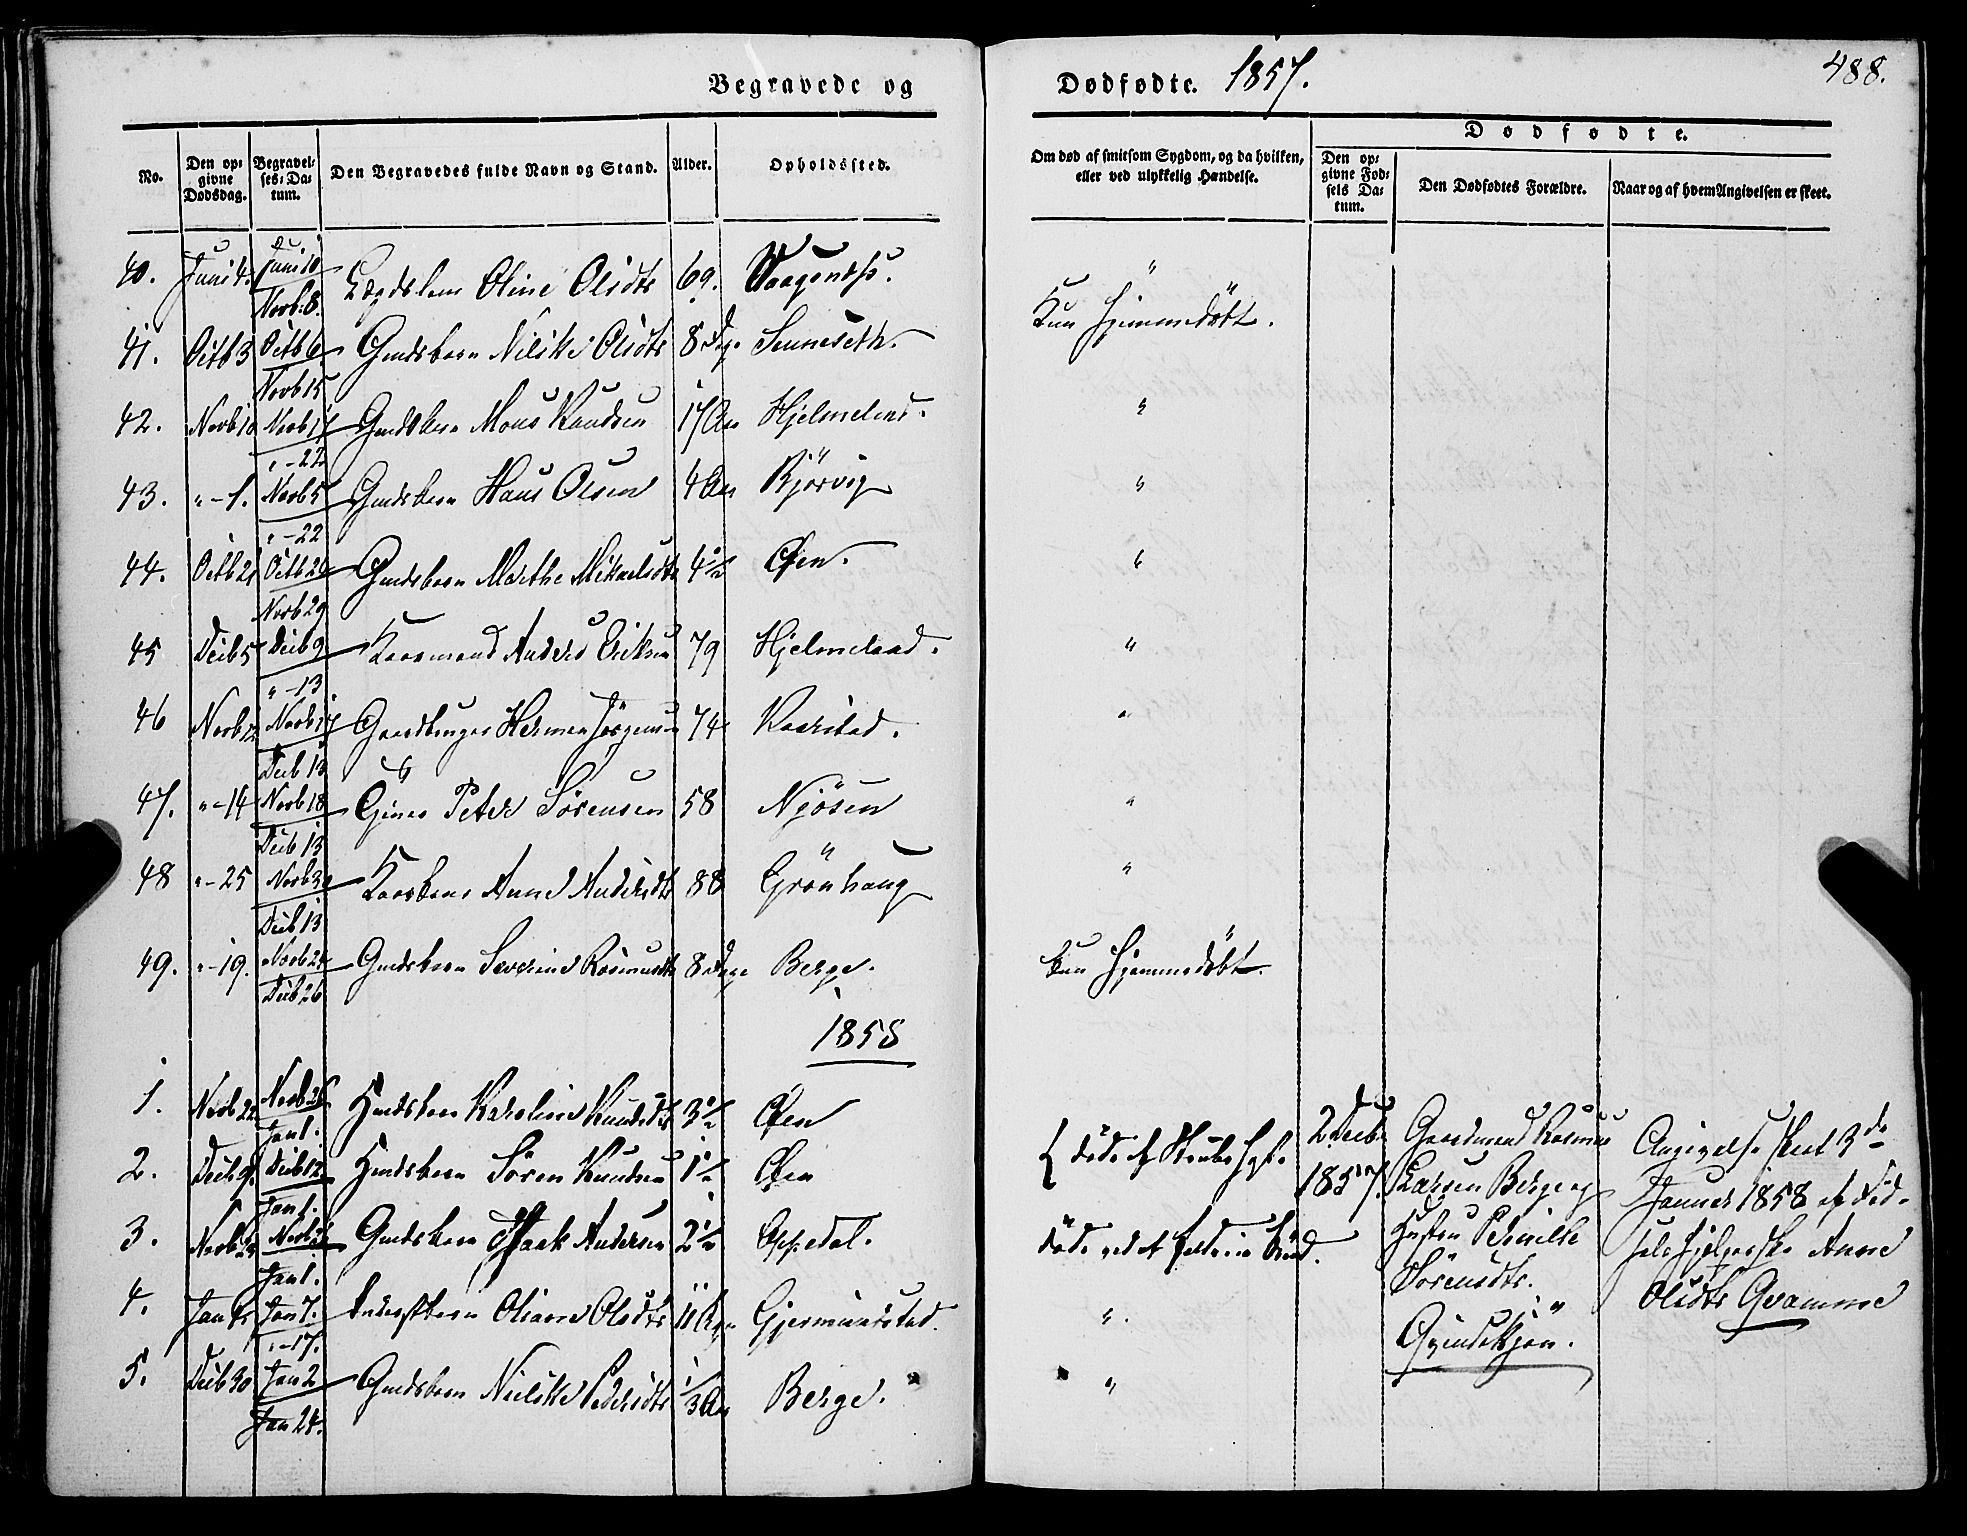 Begravede og Dødfødte. 1857. 488.
No. | Den opgivne Dødsdag. | Begravelses-Datum. | Den Begravedes fulde Navn og Stand. | Alder. | Opholdssted. | Om død af smitsom Sygdom, og da hvilken, eller ved ulykkelig Hændelse. | Dødfødte.
Den opgivne Fødsels Datum. | Den Dødfødtes Forældre. | Naar og af hvem Angivelsen er skeet.
40. Juni 4. Juni 10 Novb. 8. Lægdslem Oline Olsdtr 69. "
41. Octb 3 Octb 6 Novb 15 Gmdsbarn Nilsike Olsdtr 8 Dge Sunneseth. Kun hjemmedøbt.
42. Novb 10 Novb 17 "-22 Gmdsbarn Mons Knudsen 17 Aar "
43. "-1. Novb 5 "-22 Gmdsbarn Hans Olsen 4 Aar Bjørvig "
44. Octb 21 Octb 26 Novb 29 Gmdsbarn Marthe Mikaelsdtr 4 1/2 Øen. "
45 Decb 5 Decb 9 "-13 Kaarmand Anders Eriksen 79 Hjelmeland. "
46 Novb 12 Novb 17 Decb 13 Gaardbruger Herman Jørgensen 74 Kaarstad. "
47. "-14 Novb 18 Decb 13 Peter Sørensen 58 Njøsen "
48 "-25 Novb 30 Decb 13 Kaarkone Anne Andersdtr 88 Grønhaug "
49. "-19. Novb 24 Decb 26 Gmdsbarn Severine Rasmusdtr 8 Dage Berge. Kun hjemmedøbt.
1858
1. Novb 22 Novb 26 Jan 1. Hmdsbarn Karoline Knudsdtr 3 1/2 Øen
2. Decb 9. Decb 12 Jan 1. Hmdsbarn Søren Knudsen 1 1/2 Øen { døde af Strubehoste.
3. Novb Novb Jan 1. Gmdsbarn Isaak Andersen 2 1/2 Oppedal. døde ved at falde i en Brønd.
4. Jan Jan 7. "-17. Inderstbarn Oliane Olsdtr 11 Dge Gjermundstad. "
5. Decb 30 Jan 2 Jan 24. Gmdsbarn Nielsike Pedersdtr 1/3 Aar Berge. "
2 Decb 1857.
Gaardmand Rasmus
Larsen Berge og
Hustru Pernille
Sørensdtr.
Qvindekjøn.
Angivelse skeet 3de
Januar 1858 af Fød-
selshjelperske Anne
Olsdtr Qvamme